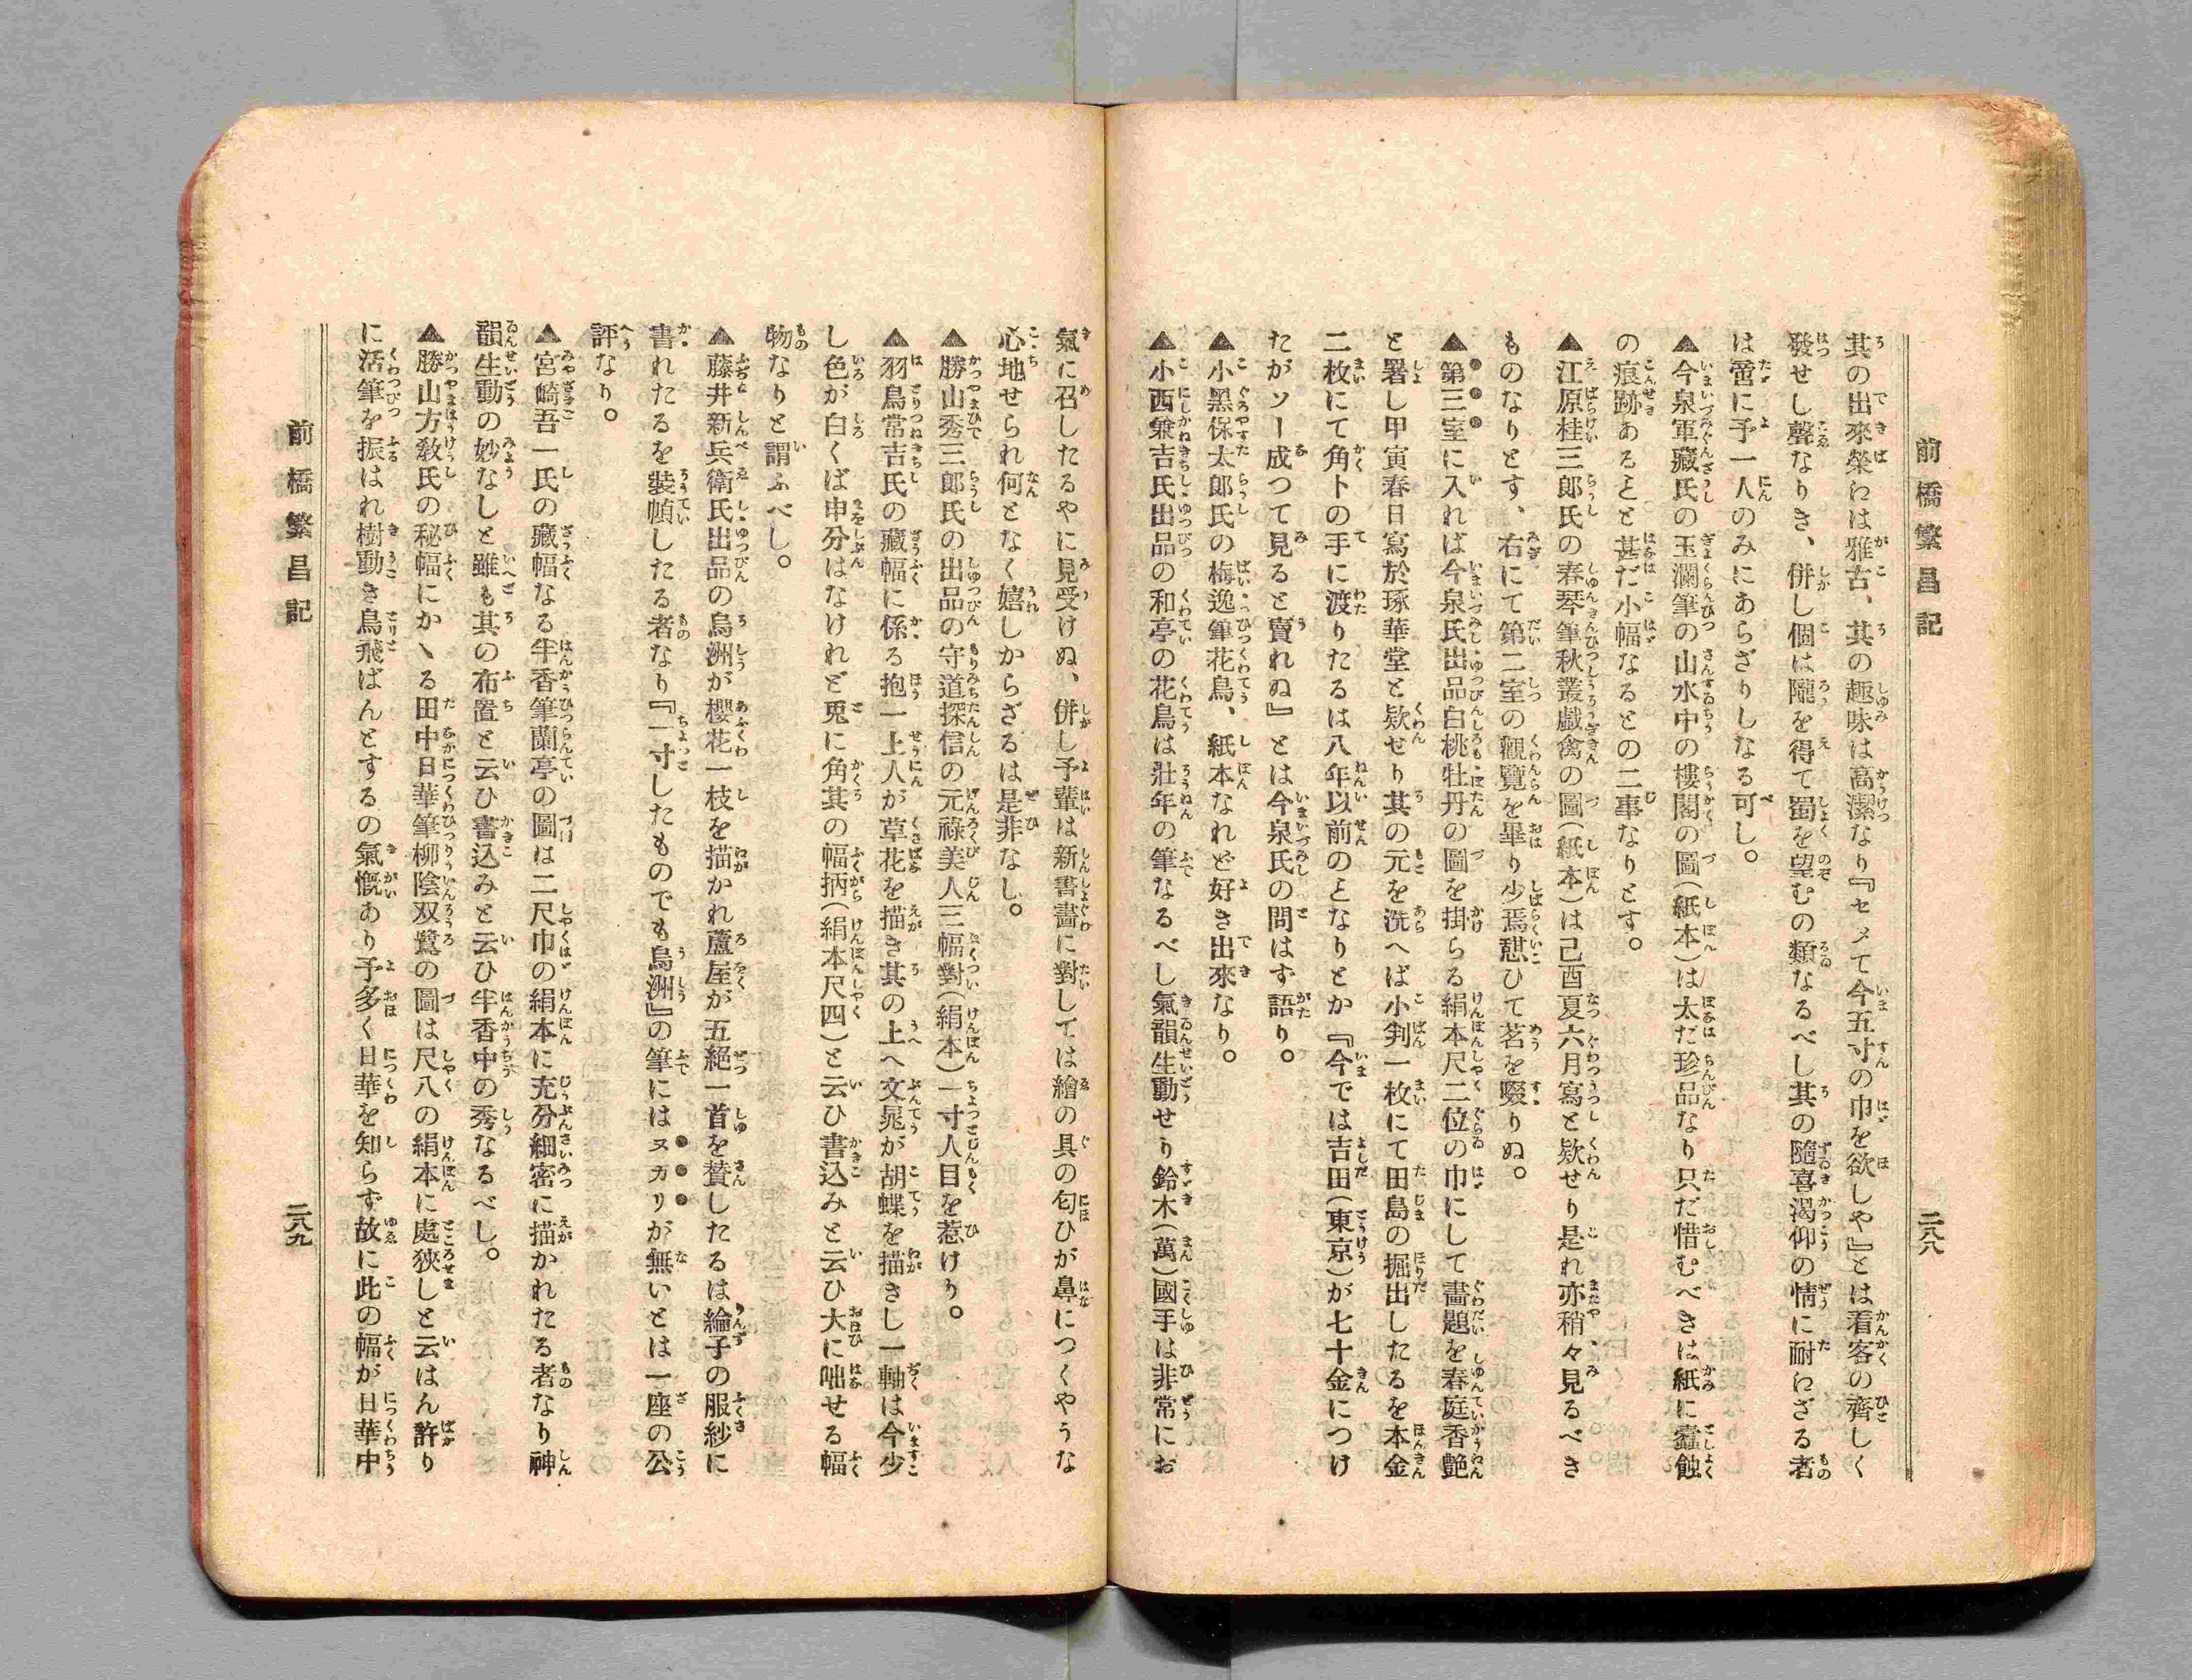 前橋繁昌記
二八八
其の出來榮は雅古、其の趣味は高潔なり『セメて今五寸の巾を欲しや』とは看客の齊しく
發せし聲なりき、併し個は隴を得て蜀を望むの類なるべし其の隨喜渇仰の情に耐わざる者
は啻に予一人のみにあらざりしなる可し。
▲今泉軍藏氏の玉瀾筆の山水中の樓閣の圖(紙本)は太だ珍品なり只だ惜むべきは紙に蠧蝕
の痕跡あるとと甚だ小幅なるとの二事なりとす。
▲江原桂三郎氏の春琴筆秋叢戯禽の圖(紙本)は己酉夏六月寫と欵せり是れ亦稍々見るべき
ものなりとす、右にて第二室の觀覽を畢り少焉憇ひて茗を啜りぬ。
▲第三室に入れば今泉氏出品白桃牡丹の圖を掛らる絹本尺二位の巾にして畵題を春庭香艶
と署し甲寅春日寫於琢華堂と欵せり其の元を洗へば小判一枚にて田島の掘出したるを本金
二枚にて角トの手に渡りたるは八年以前のとなりとか『今では吉田(東京)が七十金につけ
たがソー成つて見ると賣れぬ』とは今泉氏の問はず語り。
▲小黑保太郎氏の梅逸筆花鳥、紙本なれど好き出來なり。
▲小西兼吉氏出品の和亭の花鳥は壯年の筆なるべし氣韻生動せり鈴木(萬)國手は非常にお
氣に召したるやに見受けぬ、併し予輩は新書畵に對しては繪の具の匂ひが鼻につくやうな
心地せられ何となく嬉しからざるは是非なし。
▲勝山秀三郎氏の出品の守道探信の元祿美人三幅對(絹本)一寸人目を惹けり。
▲羽鳥常吉氏の藏幅に係る抱一上人が草花を描き其の上へ文晁が胡蝶を描きし一軸は今少
し色が白くば申分はなけれど兎に角其の幅柄(絹本尺四)と云ひ書込みと云ひ大に咄せる幅
物なりと謂ふべし。
▲藤井新兵衛氏出品の烏洲が櫻花一枝を描かれ蘆屋が五絕一首を賛したるは綸子の服紗に
書れたるを裝幀したる者なり『一寸したものでも烏洲』の筆にはヌカリが無いとは一座の公
評なり。
▲宮崎吾一氏の藏幅なる半香筆蘭亭の圖は二尺巾の絹本に充分細密に描かれたる者なり神
韻生動の妙なしと雖も其の布置と云ひ書込みと云ひ半香中の秀なるべし。
▲勝山方敎氏の秘幅にかゝる田中日華筆柳陰双鷺の圖は尺八の絹本に處狹しと云はん許り
に活筆を振はれ樹動き鳥飛ばんとするの氣慨あり予多く日華を知らず故に此の幅が日華中
前橋繁昌記
二八九